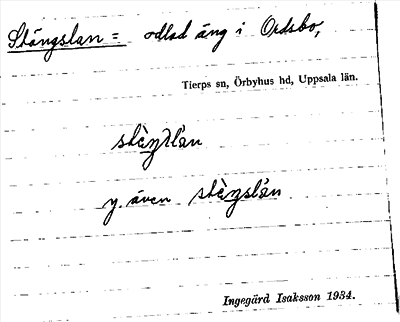 Stängslan = odlad äng i Ordsbo,
Tierps sn, Örbyhus hd, Uppsala län.
y. även
Ingegärd Isaksson 1934.